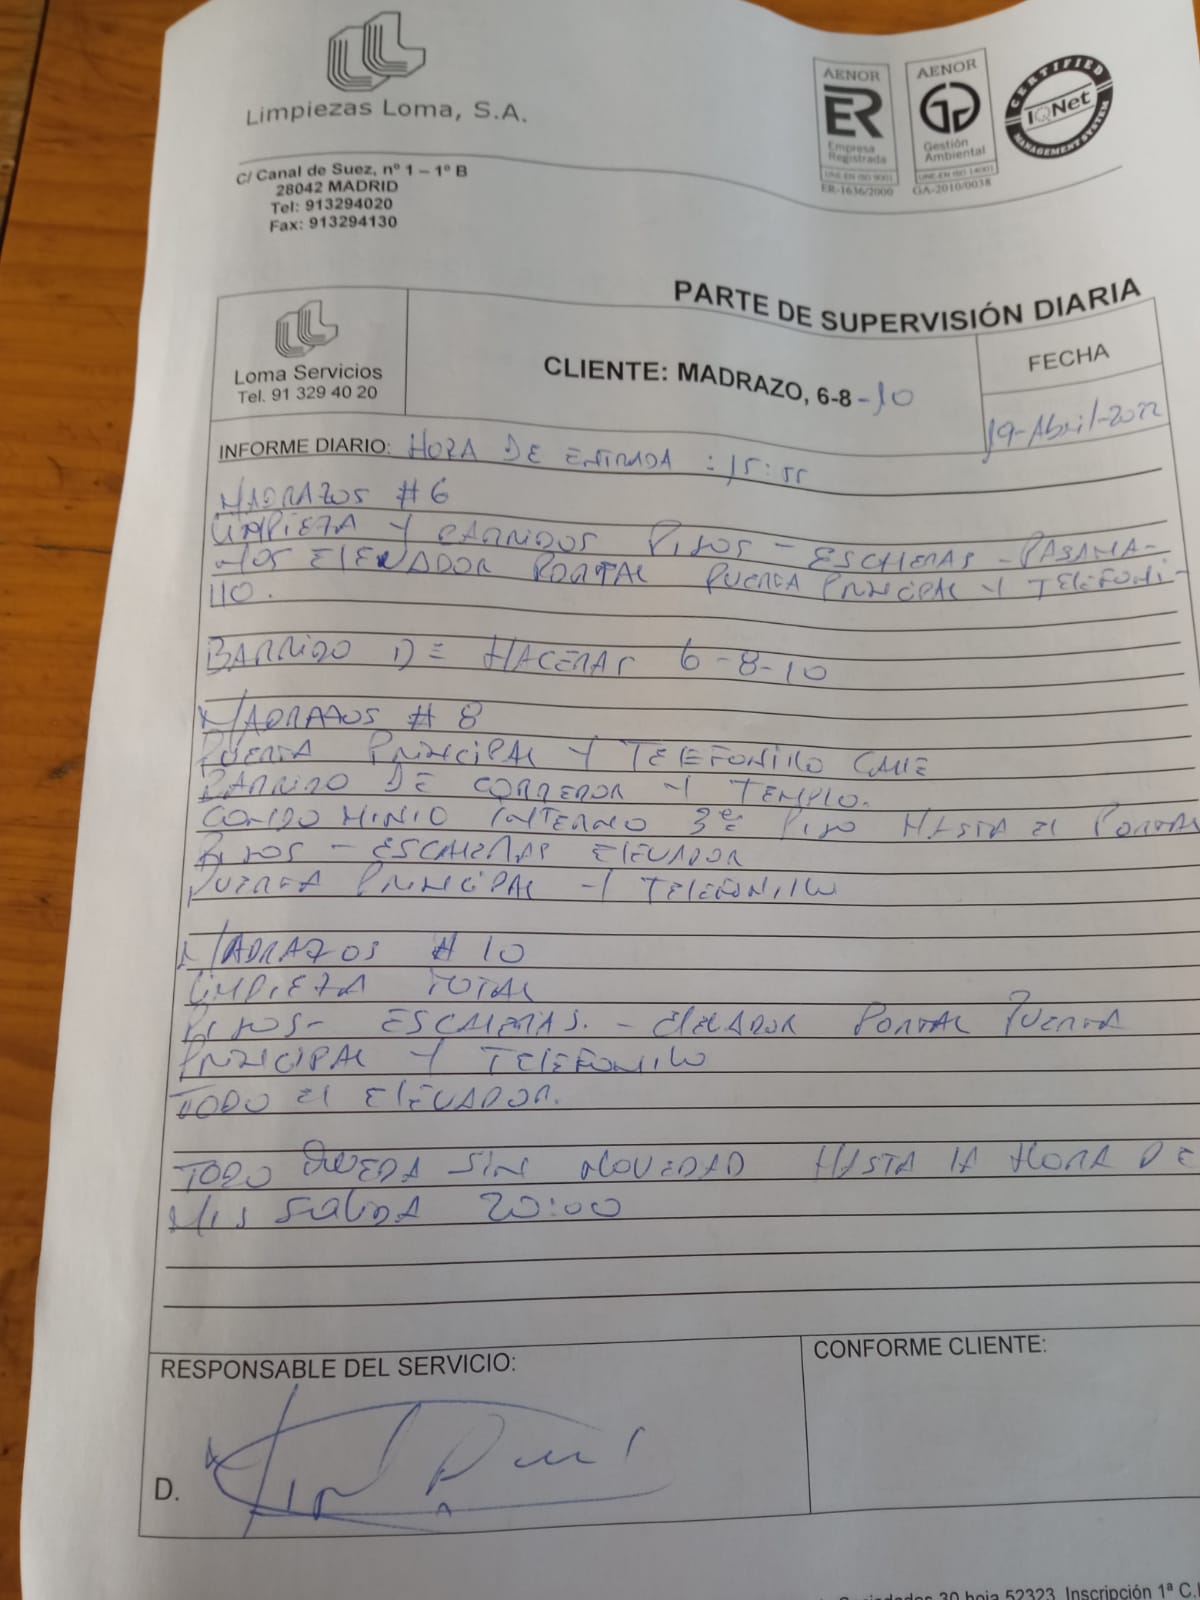 Limpiezas Loma, S.A.
C/ Canal de Suez, nº 1 – 1º B
28042 MADRID
Tel: 913294020
Fax: 913294130
AENOR
ER
Empresa
Registrada
UNE-EN ISO 9001
ER-1636/2000
AENOR
Gestión
Ambiental
UNE-EN ISO 14001
GA-2010/0038
CERTIFIED
IQNet
MANAGEMENT SYSTEM
PARTE DE SUPERVISIÓN DIARIA
Loma Servicios
Tel. 91 329 40 20
CLIENTE: MADRAZO, 6-8-10
FECHA
19-Abril-2022
INFORME DIARIO: HORA DE ENTRADA : 15:55
MADRAZOS #6
LIMPIEZA Y BARRIDOS PISOS - ESCALERAS - PASAMA-
NOS ELEVADOR PORTAL PUERTA PRINCIPAL Y TELEFONI-
LLO.
BARRIDO DE HACERAS 6-8-10
MADRAZOS #8
PUERTA PRINCIPAL Y TELEFONILLO CALLE
BARRIDO DE CORREDOR Y TEMPLO.
CONDOMINIO INTERNO 3er PISO HASTA El PORTAL
PISOS - ESCALERAS ELEVADOR
PUERTA PRINCIPAL Y TELEFONILLO
MADRAZOS #10
LIMPIEZA TOTAL
PISOS- ESCALERAS. - ELEVADOR PORTAL PUERTA
PRINCIPAL Y TELEFONILLO
TODO El ELEVADOR.
TODO QUEDA SIN NOVEDAD HASTA LA HORA DE
MIS SALIDA 20:00
RESPONSABLE DEL SERVICIO:
CONFORME CLIENTE:
D.
30 hoja 52323, Inscripción 1ª C.I